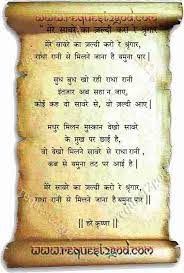 www.request2god.com
मेरे सावरे का जल्दी करो रे श्रृंगार,
राधा रानी से मिलने जाना है यमुना पार |
सुध बुध खो रही राधा रानी
इंतजार अब सहा न जाए,
कोई कह दो सावरे से, वो जल्दी आए |
मधुर मिलन मुस्कान देखो सावरे
के मुख पर छाई है,
वो देखो मिलने सावरे से राधा रानी,
कब से यमुना तट पर आई है |
मेरे सावरे का जल्दी करो रे श्रृंगार,
राधा रानी से मिलने जाना है यमुना पार ||
|| हरे कृष्णा ||
www.request2god.com